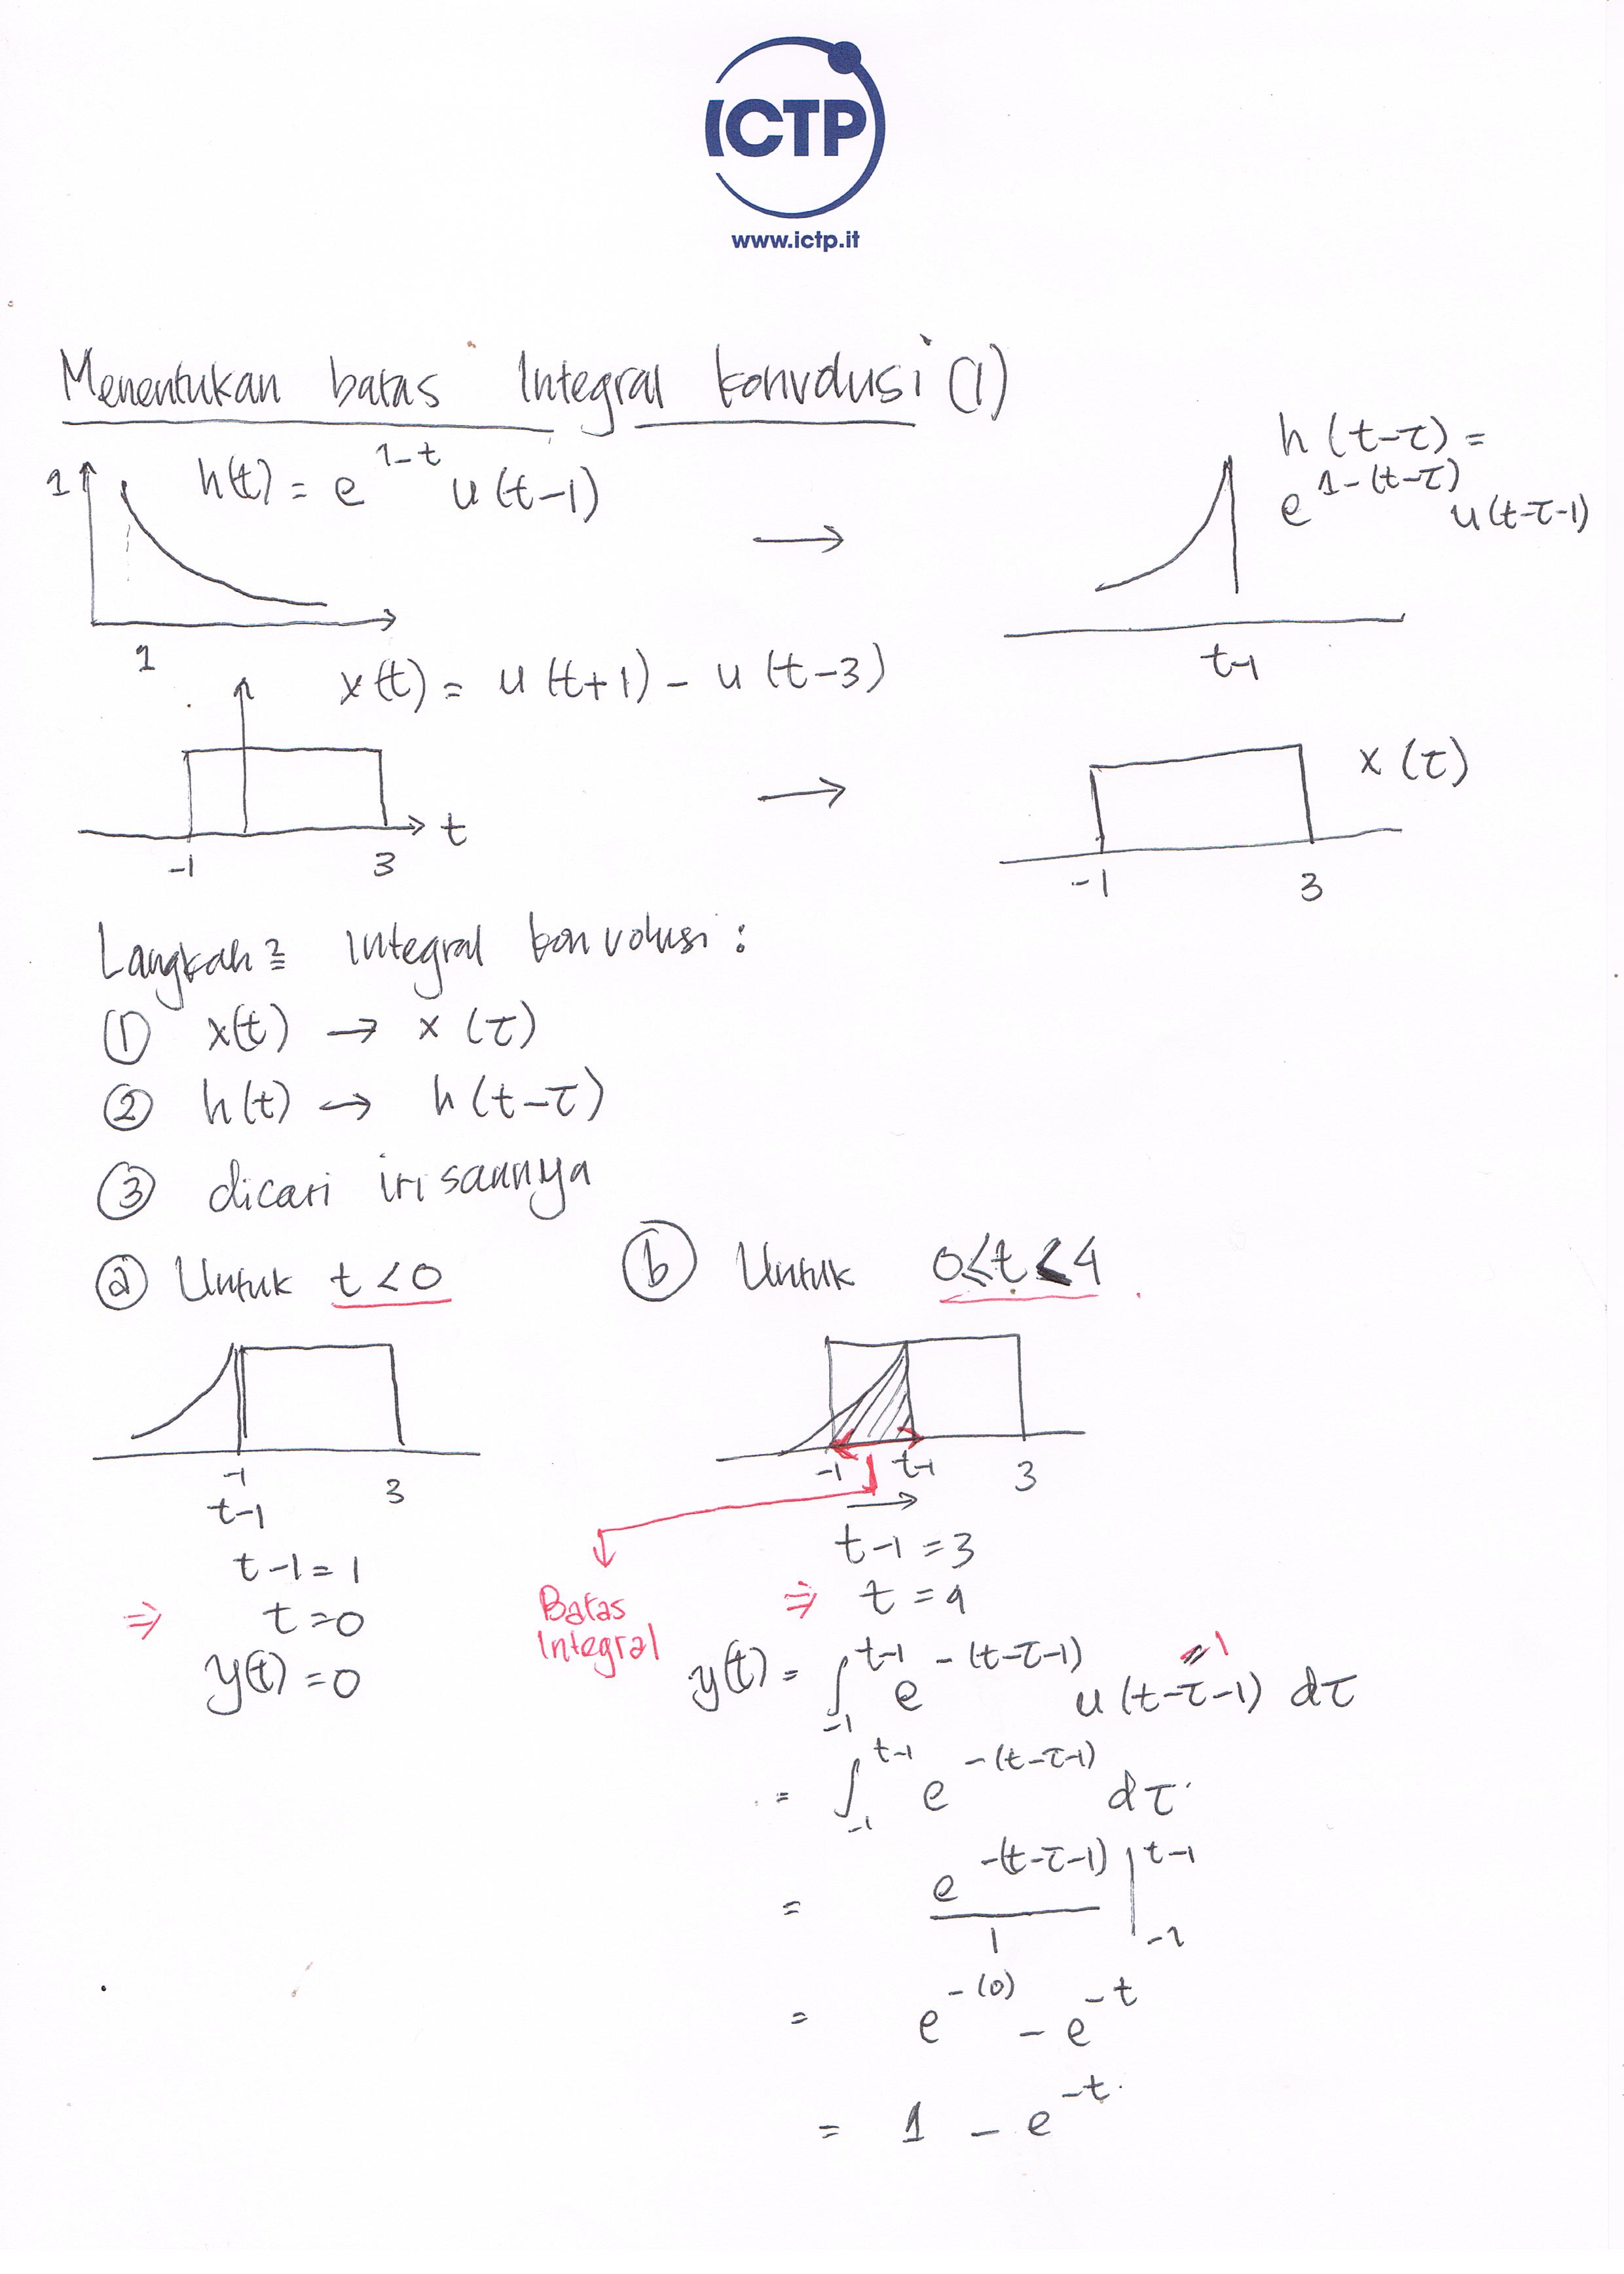 ICTP
www.ictp.it
Menentukan batas Integral konvolusi (1)
1 h(t) = e^{1-t} u(t-1)
h(t-τ) =
e^{1-(t-τ)} u(t-τ-1)
→
1
t-1
x(t) = u(t+1) - u(t-3)
→ x(τ)
-1 3 t
-1 3
Langkah2 Integral konvolusi :
① x(t) → x(τ)
② h(t) → h(t-τ)
③ dicari irisannya
ⓐ Untuk t < 0
ⓑ Untuk 0 ≤ t < 4
-1 3
t-1
t-1 = 1
⇒ t = 0
y(t) = 0
-1 t-1 3
→
Batas
Integral
t-1 = 3
⇒ t = 4
y(t) = ∫_{-1}^{t-1} e^{-(t-τ-1)} u(t-τ-1) dτ
= 1
= ∫_{-1}^{t-1} e^{-(t-τ-1)} dτ
= e^{-(t-τ-1)} / 1 |_{-1}^{t-1}
= e^{-(0)} - e^{-t}
= 1 - e^{-t}